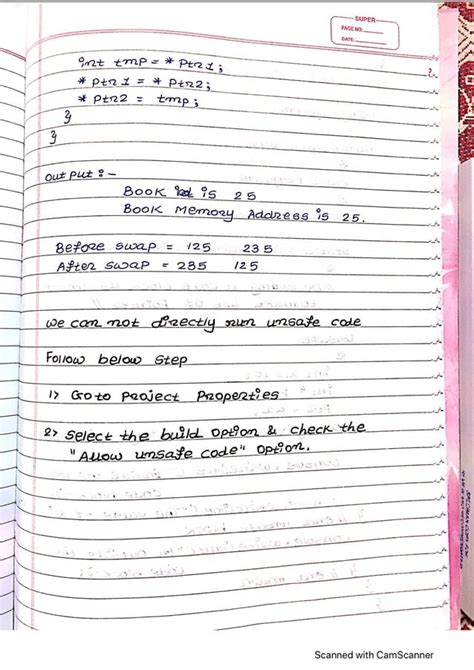 SUPER
PAGE NO.:
DATE:
int tmp = * Ptr1;
* Ptr1 = * Ptr2;
* Ptr2 = tmp;
}
}
Output :-
Book is 25
Book Memory Address is 25.
Before swap = 125 235
After swap = 235 125
we can not directly run unsafe code
Follow below step
1> Go to Project Properties
2> Select the build option & check the
"Allow unsafe code" option.
Scanned with CamScanner